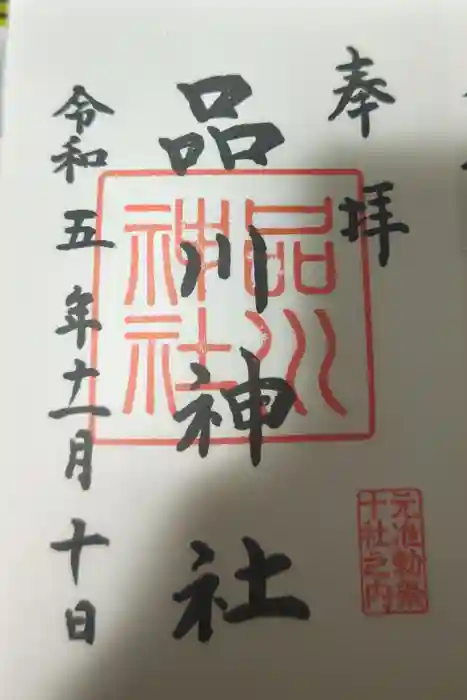 奉拝
品川神社
令和五年十一月十日
品川
神社
元准勅祭
十社之内